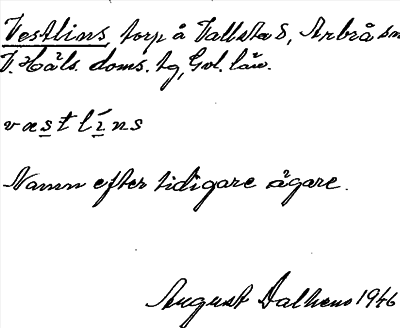 Vestlins, torp å Vallsta 8, Arbrå sn
V. Häls. doms. tg, Gvl. län.
væstlíns
Namn efter tidigare ägare.
August Dalhems 1946